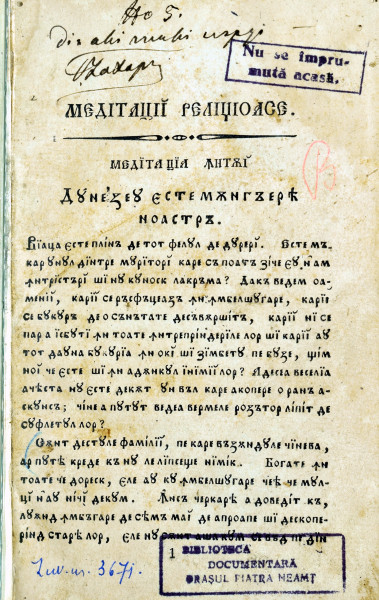 No 5.
Nu se împru-
mută acasă.
МЕДІТАЦІЙ РЕЛІЏІОАСЕ.
МЕДІТАЦІА ꙟНТѪЇ
ДꙋНЕЗЕꙋ ЕСТЕ МѪНГЪЕРѢ
НОАСТРЪ.
Віаца есте плінъ де тот фелꙋл де дꙋрері. Есте мъ-
кар ꙋнꙋл дінтре мꙋріторі каре съ поатъ зіче еꙋ н'ам
ꙟнтрістърі ші нꙋ кꙋноск лакръма? Дакъ ведем оа-
меній, карії се ръсфъцеазъ ꙟн ꙟмбелшꙋгаре, карії
се бꙋкꙋръ де о сънътате десъвѫршітъ, карії ні се
пар а ізбꙋті ꙟн тоате ꙟнтрепріндеріле лор ші карії аꙋ
тот даꙋна бꙋкꙋріа ꙟн окі ші зѫмбетꙋ пе бꙋзе, щім
ної че есте ші ꙟн адѫнкꙋл інімії лор? Адесеа веселіа
ачѣста нꙋ есте декѫт ꙋн въл каре акопере о ранъ а-
скꙋнсъ; чіне а пꙋтꙋт ведеа вермеле розътор ліпіт де
сꙋфлетꙋл лор?
Сѫнт дестꙋле фамілії, пе каре възѫндꙋле чінева,
ар пꙋтѣ креде къ нꙋ ле ліпсеще німік. Богате ꙟн
тоате че дореск, еле аꙋ кꙋ ꙟмбелшꙋгаре чеѣ че мꙋл-
ці н'аꙋ нічі декꙋм. ꙟнсъ черкарѣ а доведіт къ,
лꙋѫнд ꙟмбъгаре де съмъ маї де апроапе ші дескопе-
ріnd старѣ лор, еле нꙋ сѫнт аша кꙋм
1
BIBLIOTECA
DOCUMENTARĂ
ORAȘUL PIATRA NEAMȚ
Inv. nr. 3671.